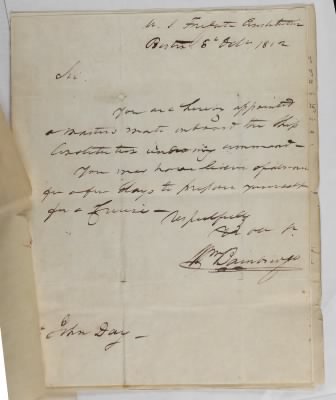 U. S. Frigate Constitution
Boston 6th Octr 1812
Sir
You are hereby appointed
a masters mate onboard the Ship
Constitution under my command —
You may have leave of absence
for a few days to prepare yourself
for a Cruise —
Respectfully
Wm Bainbridge
John Day —